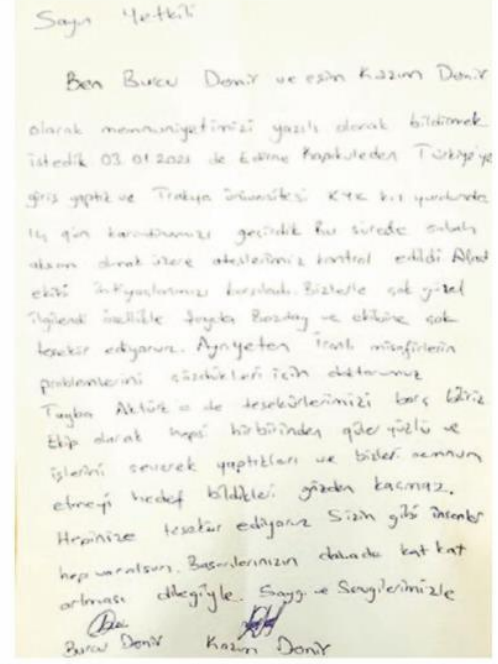 Sayın Yetkili
Ben Burcu Demir ve eşim Kazım Demir
olarak memnuniyetimizi yazılı olarak bildirmek
istedik 03.01.2021 de Edirne Kapıkuleden Türkiye'ye
giriş yaptık ve Trakya Üniversitesi KYK kız yurdunda
14 gün karantinamızı geçirdik Bu sürede sabah
akşam olmak üzere ateşlerimiz kontrol edildi Afad
ekibi ihtiyaçlarımızı karşıladı. Bizlerle çok güzel
ilgilendi özellikle Bozdağ ve ekibine çok
teşekür ediyoruz. Ayriyeten İranlı misafirlerin
problemlerini çözdükleri için doktorumuz
Tuğba Aktürk e de teşekürlerimizi borç biliriz
Ekip olarak hepsi birbirinden güler yüzlü ve
işlerini severek yaptıkları ve bizleri memnun
etmeyi hedef bildikleri gözden kaçmaz.
Hepinize teşekür ediyoruz Sizin gibi insanlar
hep varolsun. Başarılarınızın dahada kat kat
artması dileğiyle. Saygı ve Sevgilerimizle
Burcu Demir Kazım Demir